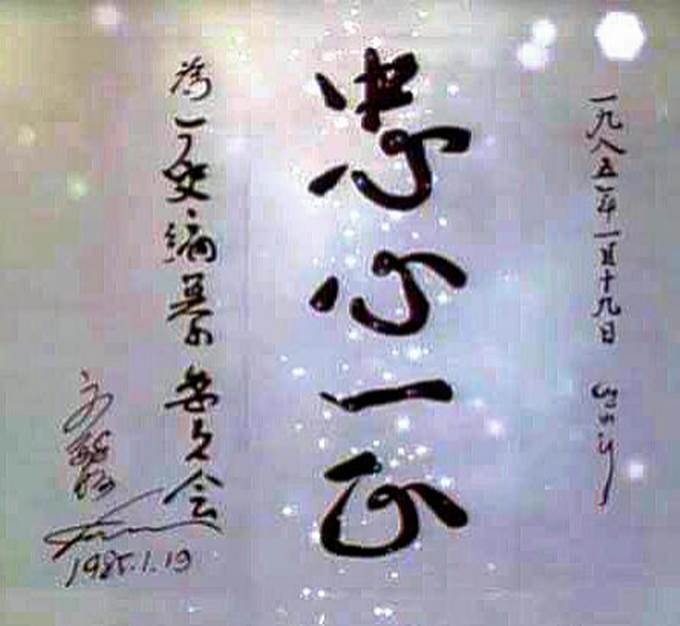 一九八五年一月十九日
忠心一正
为厂史编纂委员会
1985.1.19